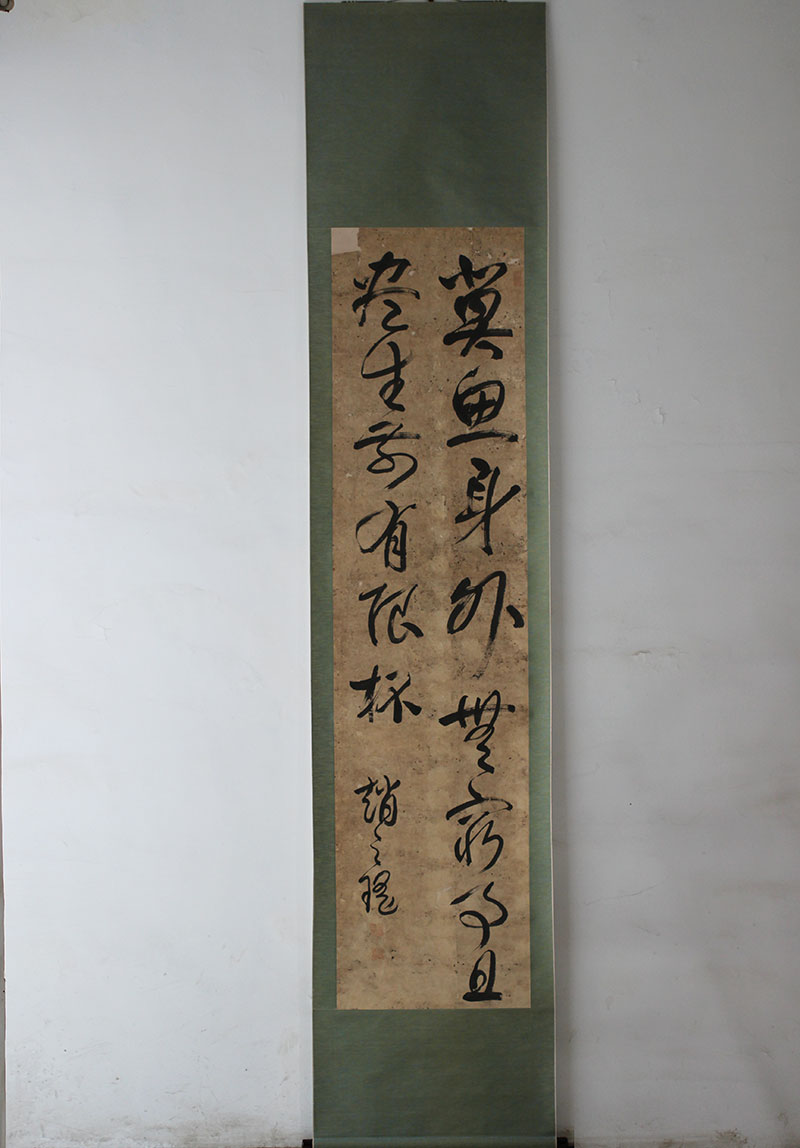 莫思身外無窮事且
盡生前有限杯
趙之